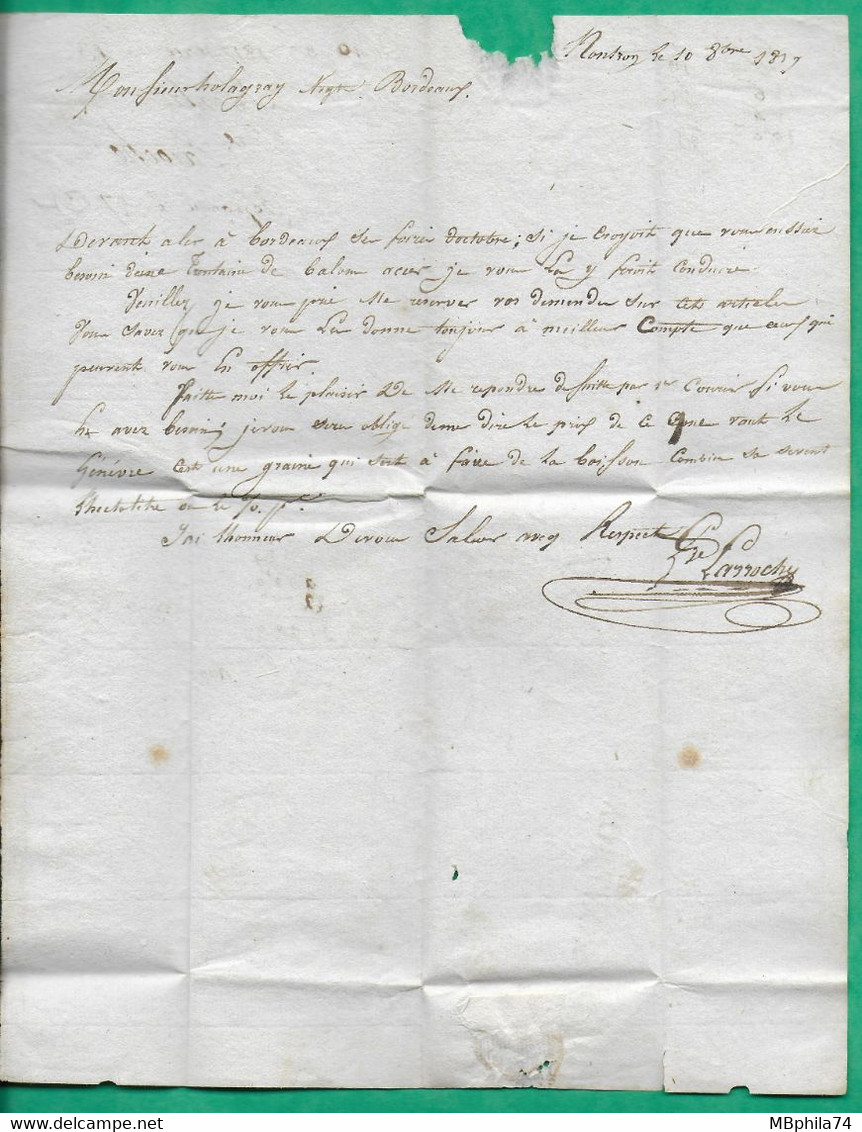 Nontron le 10 8bre 1817
Monsieur holagray Negt Bordeaux.
Devant aler à bordeaux se foire doctobre; si je Croyoit que vous eussiez
besoin dune de je vous La y feroit Conduire.
Veuillez je vous prie Me reserver vos demandes sur Cet article
Vous savez que je vous La donne toujour à meilleur Compte que ceux qui
peuvent vous En offrir.
faitte moi le plaisir De Me repondre de suitte par 1er Courier si vous
En avez besoin; je vous sere oblige de me dire Le prix de Ce que vaut Le
Genévre Cest une graine qui sert à faire de La boisson Combien sa se vent
Lhectolitre ou le
Jai Lhonneur De vous Saluer aveq Respect
Larroche
MBphila74